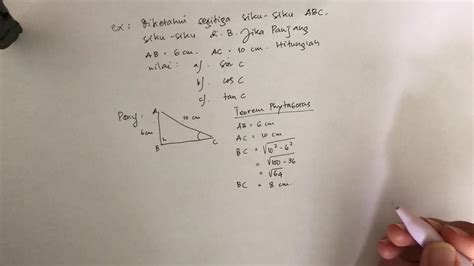 Ex: Diketahui segitiga siku-siku ABC,
siku-siku di B. Jika Panjang
AB = 6 cm. AC = 10 cm. Hitunglah
nilai: a/. sin C
b/. cos C
c/. tan C
Peny:
A
10 cm
6 cm
B
C
Teorem Phytagoras
AB = 6 cm
AC = 10 cm
BC = √10² - 6²
= √100 - 36
= √64
BC = 8 cm.